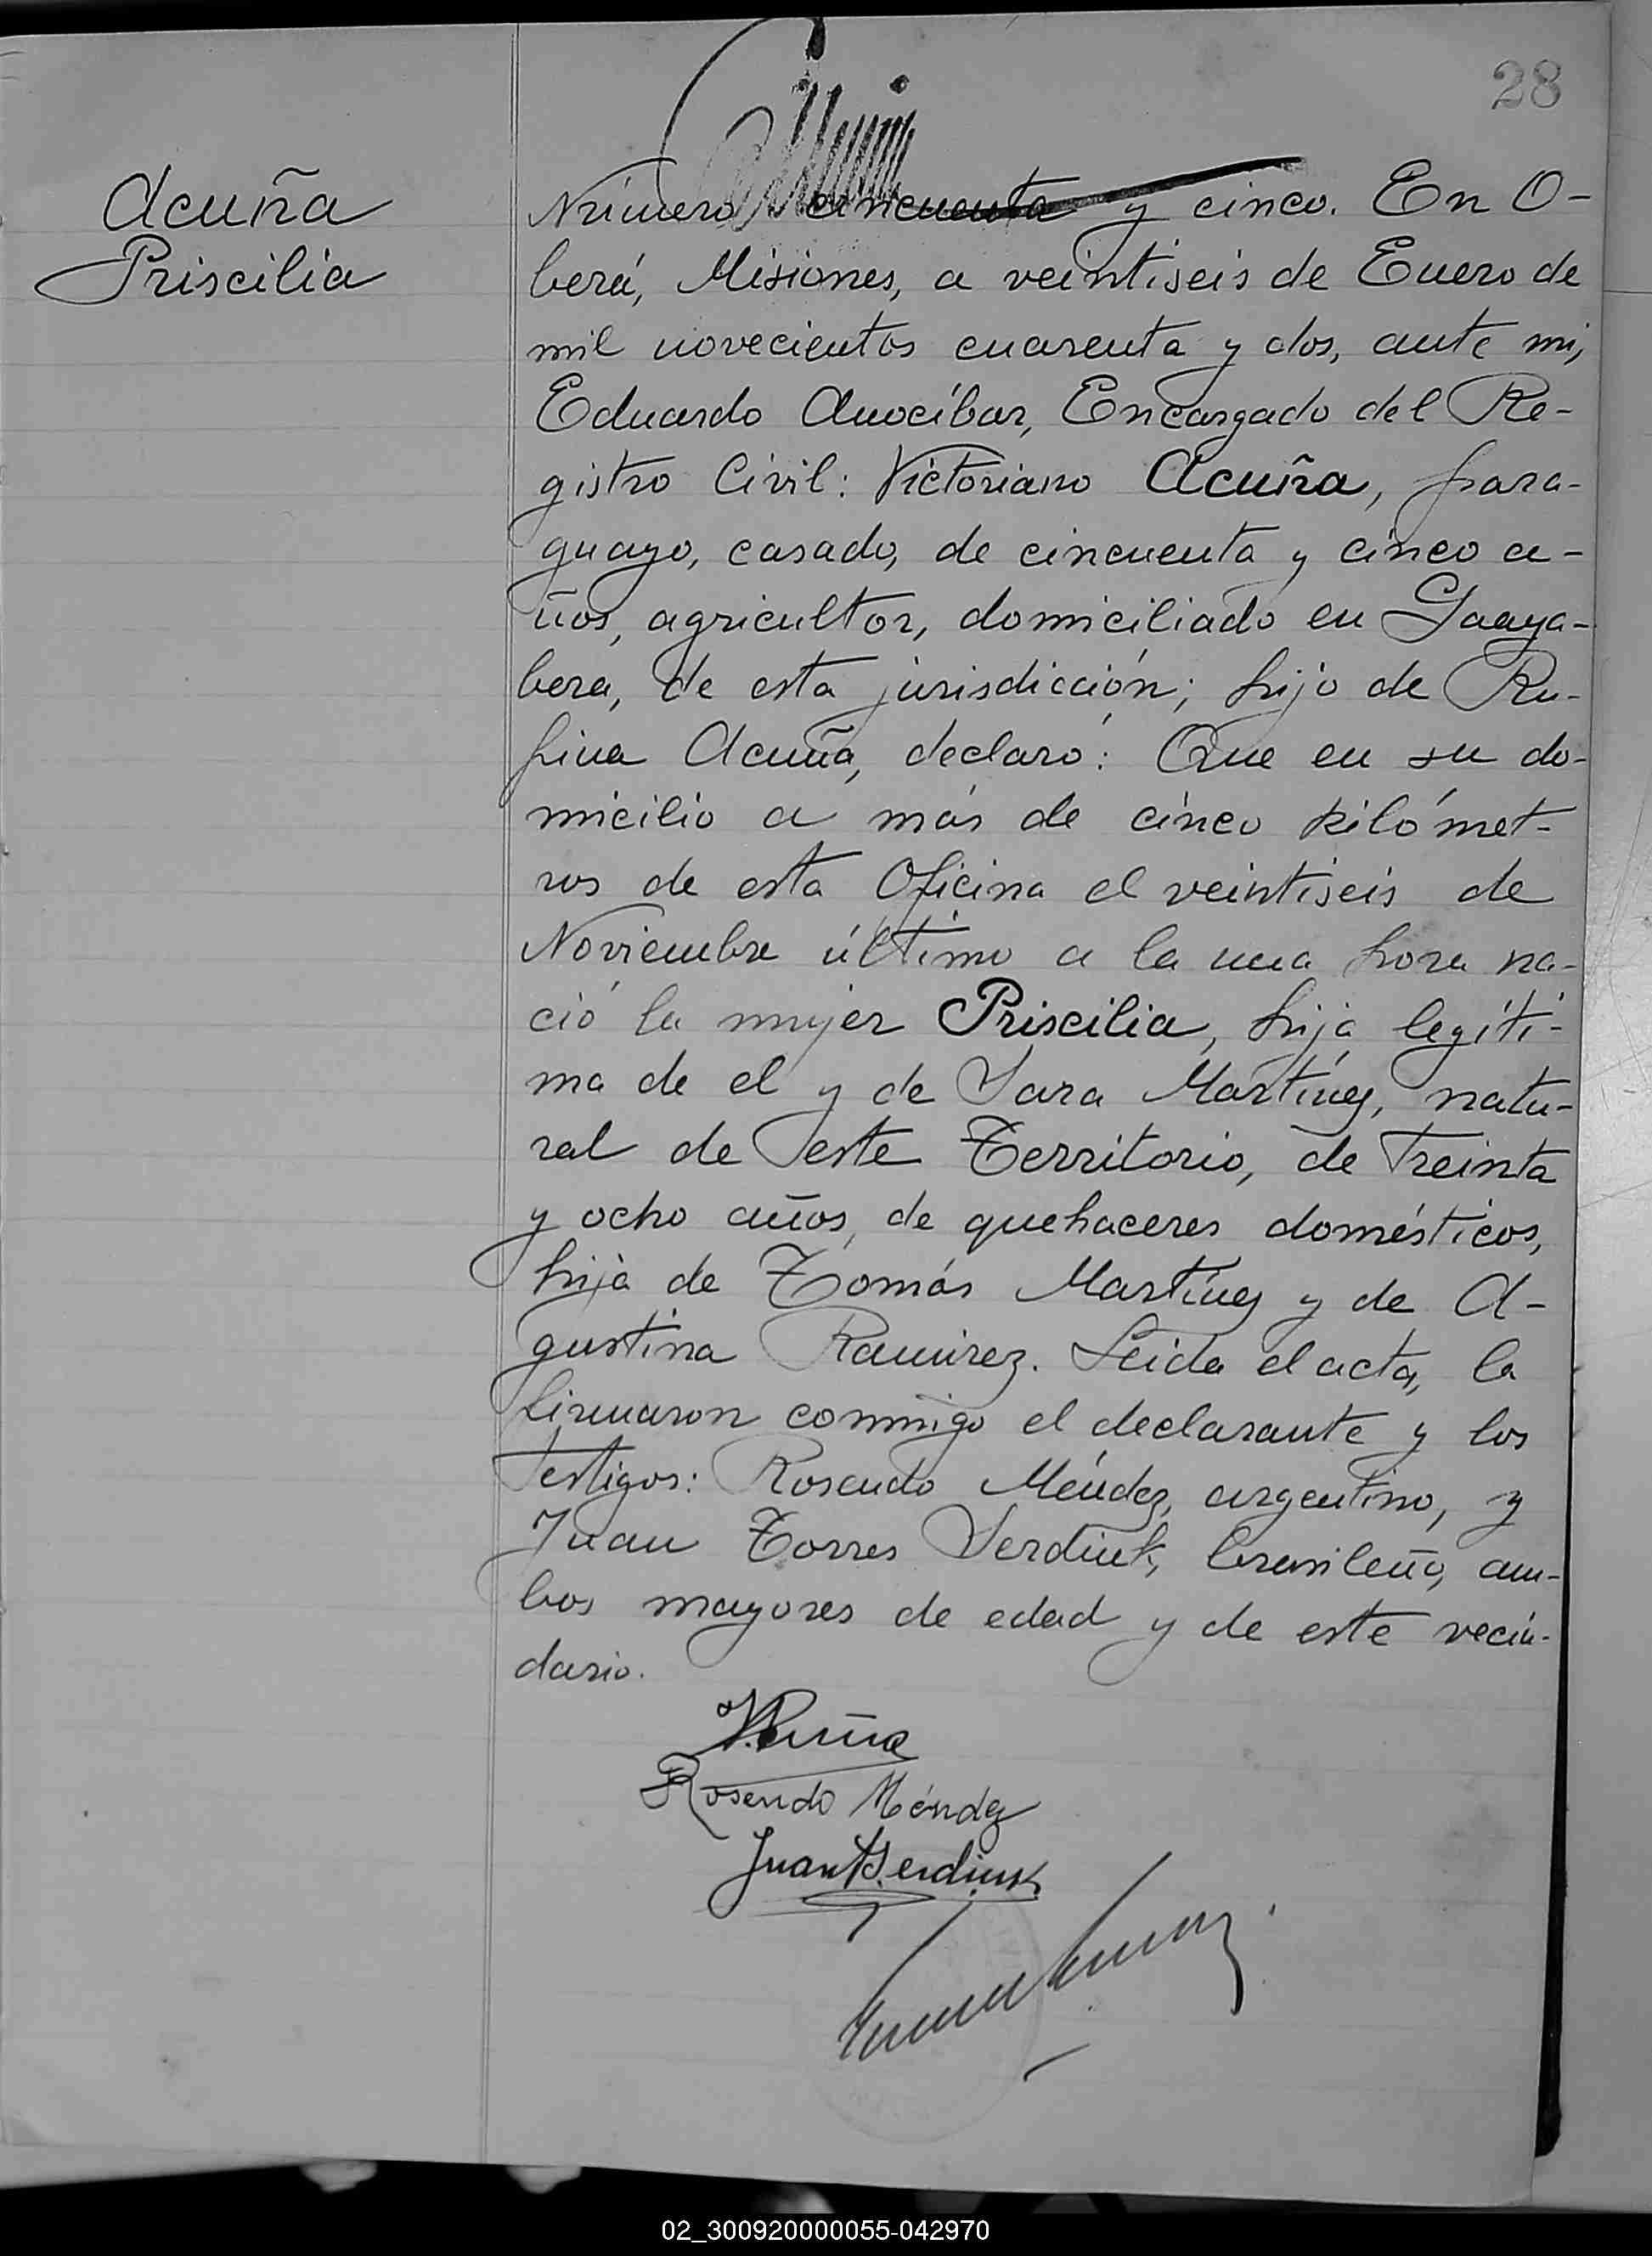 28
Acuña
Priscilia
Número cincuenta y cinco. En O-
berá, Misiones, a veintiseis de Enero de
mil novecientos cuarenta y dos, ante mi,
Eduardo Anocíbar, Encargado del Re-
gistro Civil: Victoriano Acuña, para-
guayo, casado, de cincuenta y cinco a-
ños, agricultor, domiciliado en Guaya-
bera, de esta jurisdicción; hijo de Ru-
fina Acuña, declaró: Que en su do-
micilio a más de cinco kilómet-
ros de esta Oficina el veintiseis de
Noviembre último a la una hora na-
ció la mujer Priscilia, hija legíti-
ma de el y de Sara Martínez, natu-
ral de este Territorio, de treinta
y ocho años, de quehaceres domésticos,
hija de Tomás Martínez y de A-
gustina Ramirez. Leida el acta, la
firmaron conmigo el declarante y los
testigos: Rosendo Méndez, argentino, y
Juan Torres Serdiuk, brasileño, am-
bos mayores de edad y de este vecin-
dario.
V. Acuña
Rosendo Méndez
Juan T. Serdiuk
02_300920000055-042970